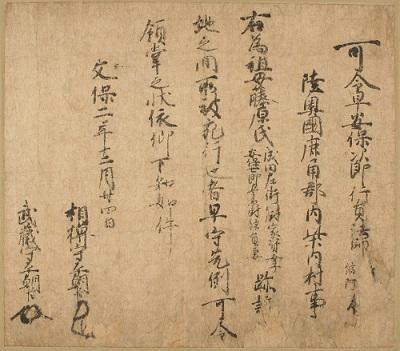 可令早安保次郎行員法師
陸奥國鹿角郡内柴内村事
右為祖母藤原氏 跡
地之間所被充行也者早守先例可令
領掌之状依仰下知如件
文保二年十二月廿四日
相模守平朝臣
武蔵守平朝臣